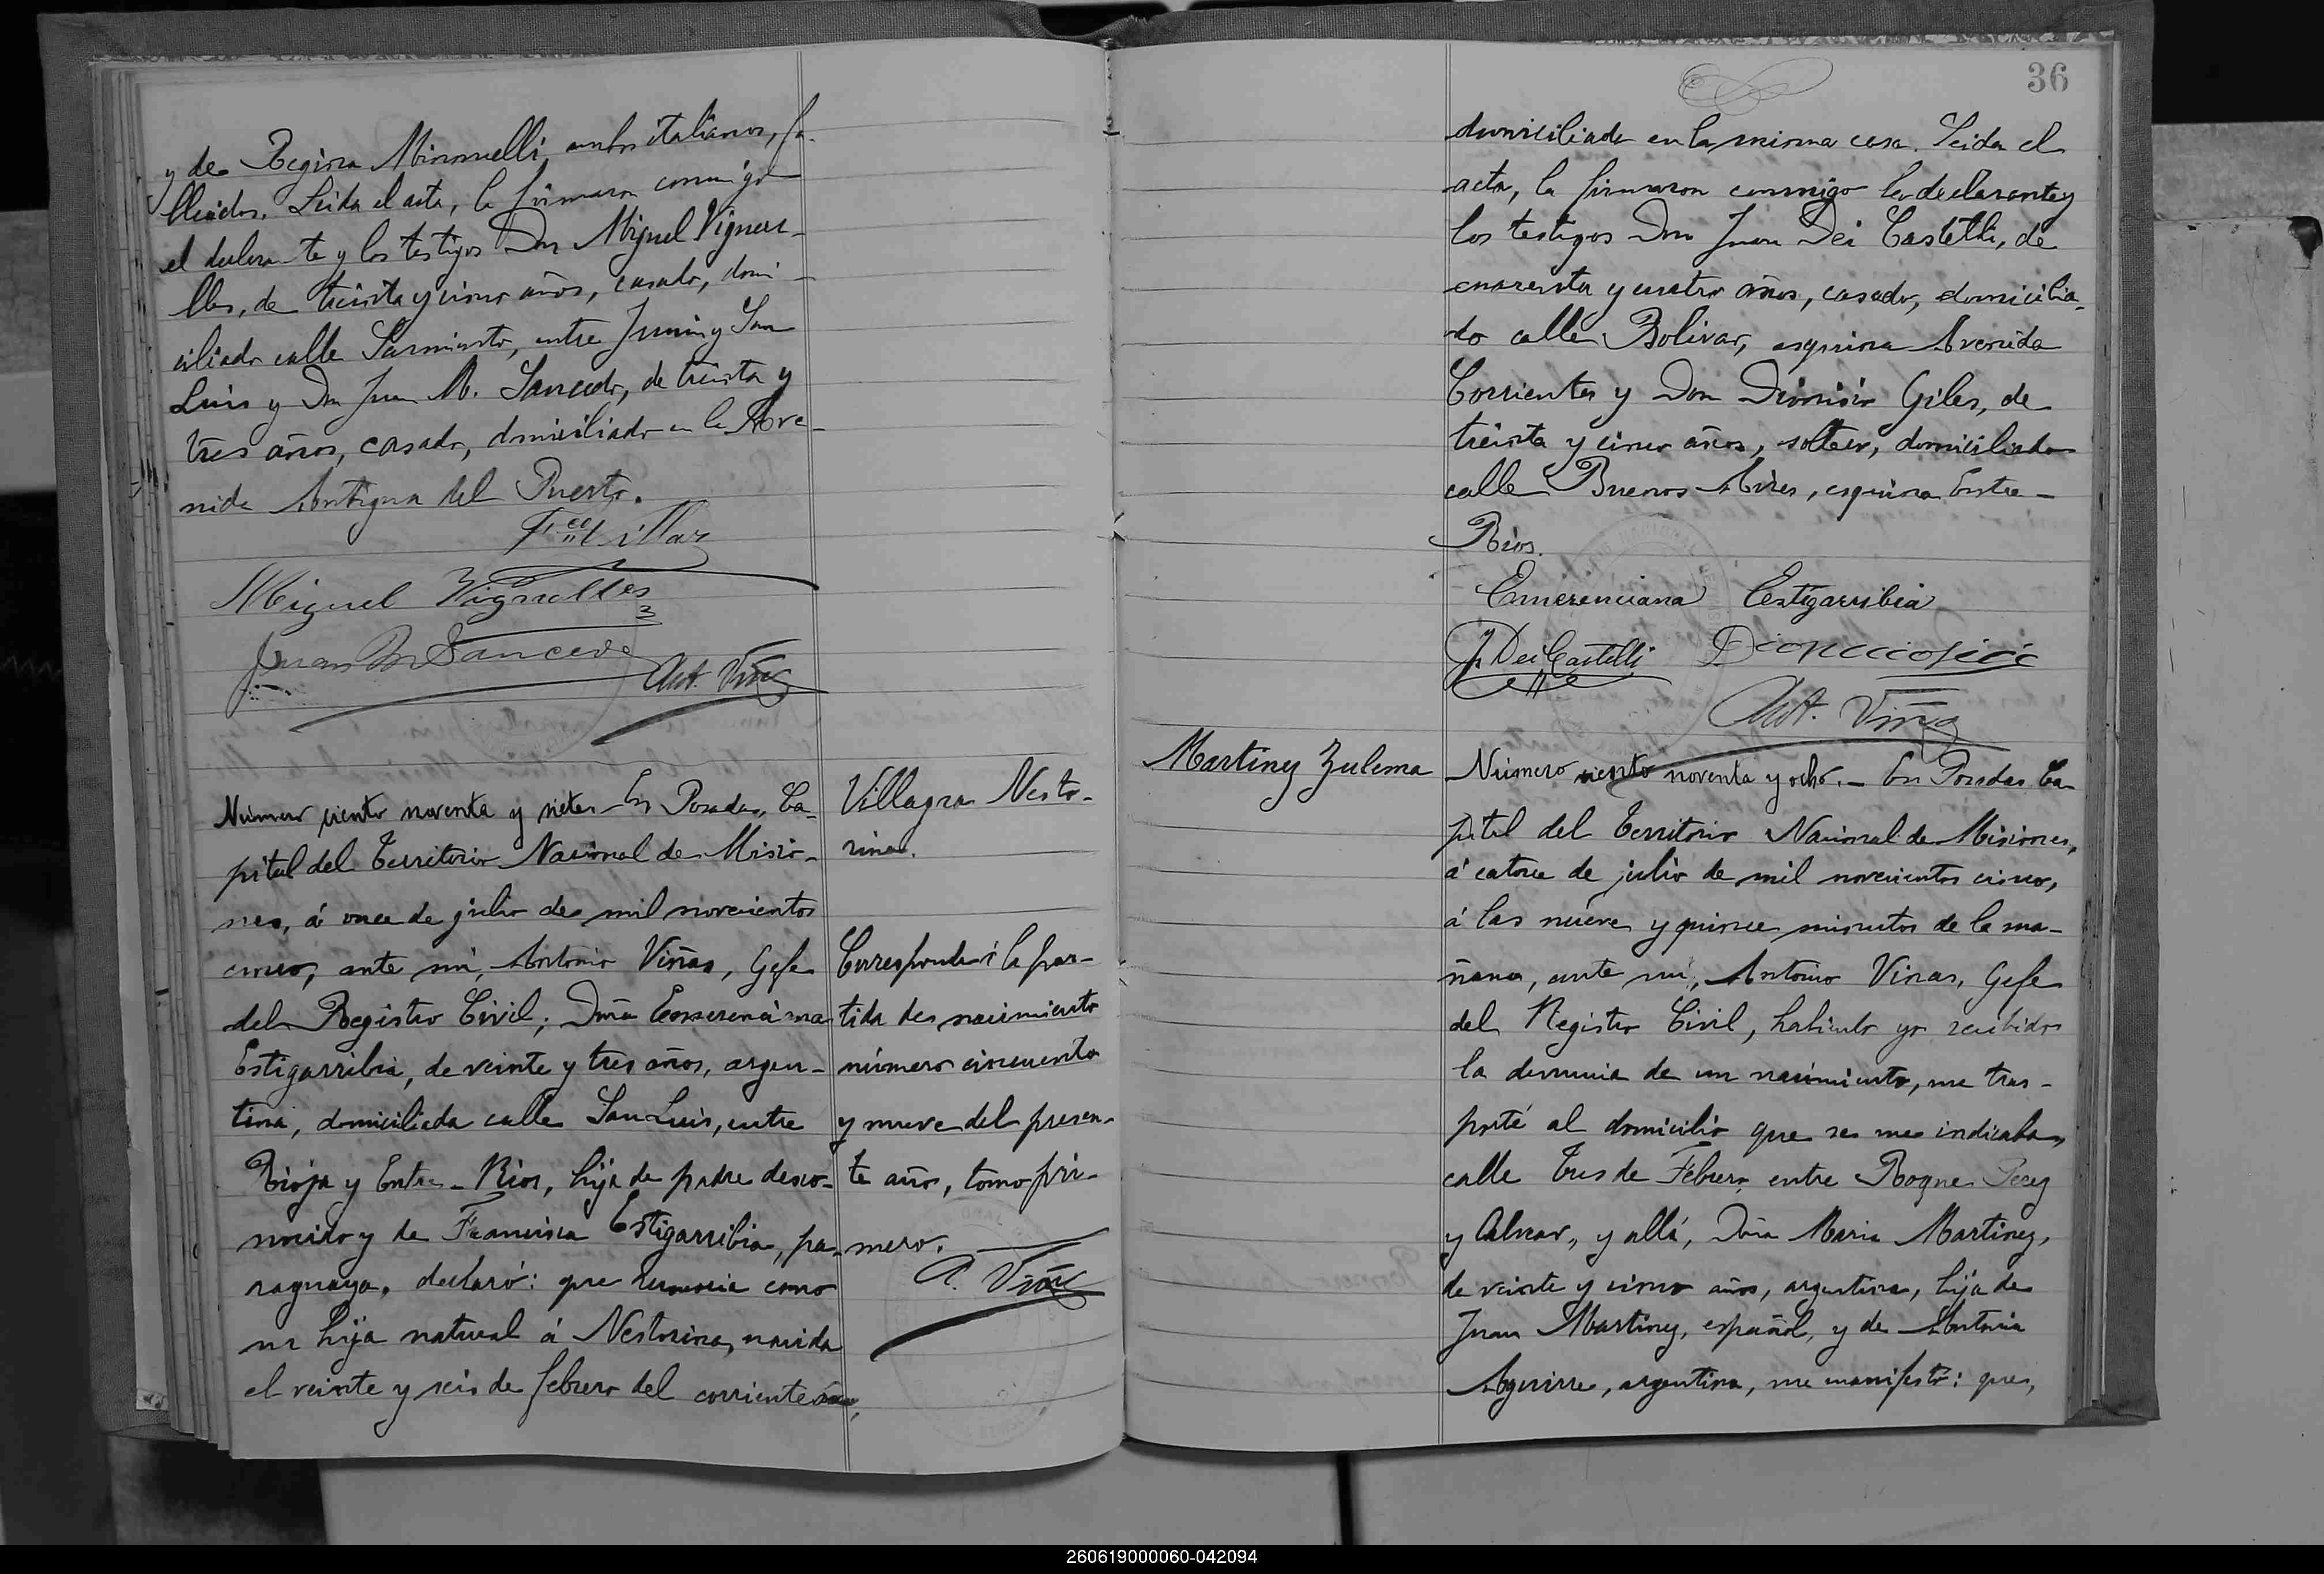 y de Regina Minonuelli, ambos italianos, fa-
llecidos. Leida el acta, la firmaron conmigo
el declarante y los testigos Don Miguel Vignue-
lles, de treinta y cinco años, casado, domi-
ciliado calle Sarmiento, entre Junin y San
Luis y Don Juan M. Sancedo, de treinta y
tres años, casado, domiciliado en la Ave-
nida Antigua del Puerto.
Miguel Vignolles
Juan M Sancedo
Ant. Viñas
Número ciento noventa y siete En Posadas, Ca-
pital del Territorio Nacional de Misio-
nes, á once de julio de mil novecientos
cinco, ante mí, Antonio Viñas, Gefe
del Registro Civil; Doña Emerenciana
Estigarribia, de veinte y tres años, argen-
tina, domiciliada calle San Luis, entre
Rioja y Entre-Rios, hija de padre desco-
nocido y de Francisca Estigarribia, pa-
raguaya, declaró: que reconocia como
su hija natural á Nestorina, nacida
el veinte y seis de febrero del corriente año,
Villagra Nesto-
rina.
Corresponde á la par-
tida de nacimiento
número cincuenta
y nueve del presen-
te año, tomo pri-
mero.
A. Viñas
36
domiciliado en la misma casa. Leida el
acta, la firmaron conmigo la declarante y
los testigos Don Juan Dei Castelli, de
cuarenta y cuatro años, casado, domicilia-
do calle Bolivar, esquina Avenida
Corrientes y Don Dionisio Giles, de
treinta y cinco años, soltero, domiciliado
calle Buenos Aires, esquina Entre-
Rios.
Emerenciana Estigarribia
J. Dei Castelli
Ant. Viñas
Martinez Zulema
Número ciento noventa y ocho.- En Posadas Ca-
pital del Territorio Nacional de Misiones,
á catorce de julio de mil novecientos cinco,
á las nueve y quince minutos de la ma-
ñana, ante mí, Antonio Vinas, Gefe
del Registro Civil, habiendo yo recibido
la denuncia de un nacimiento, me tras-
porté al domicilio que se me indicaba,
calle Tres de Febrero entre Roque Perez
y Alvear, y allá, Doña Maria Martinez,
de veinte y cinco años, argentina, hija de
Juan Martinez, español, y de Antonia
Aguirre, argentina, me manifestó: que,
260619000060-042094